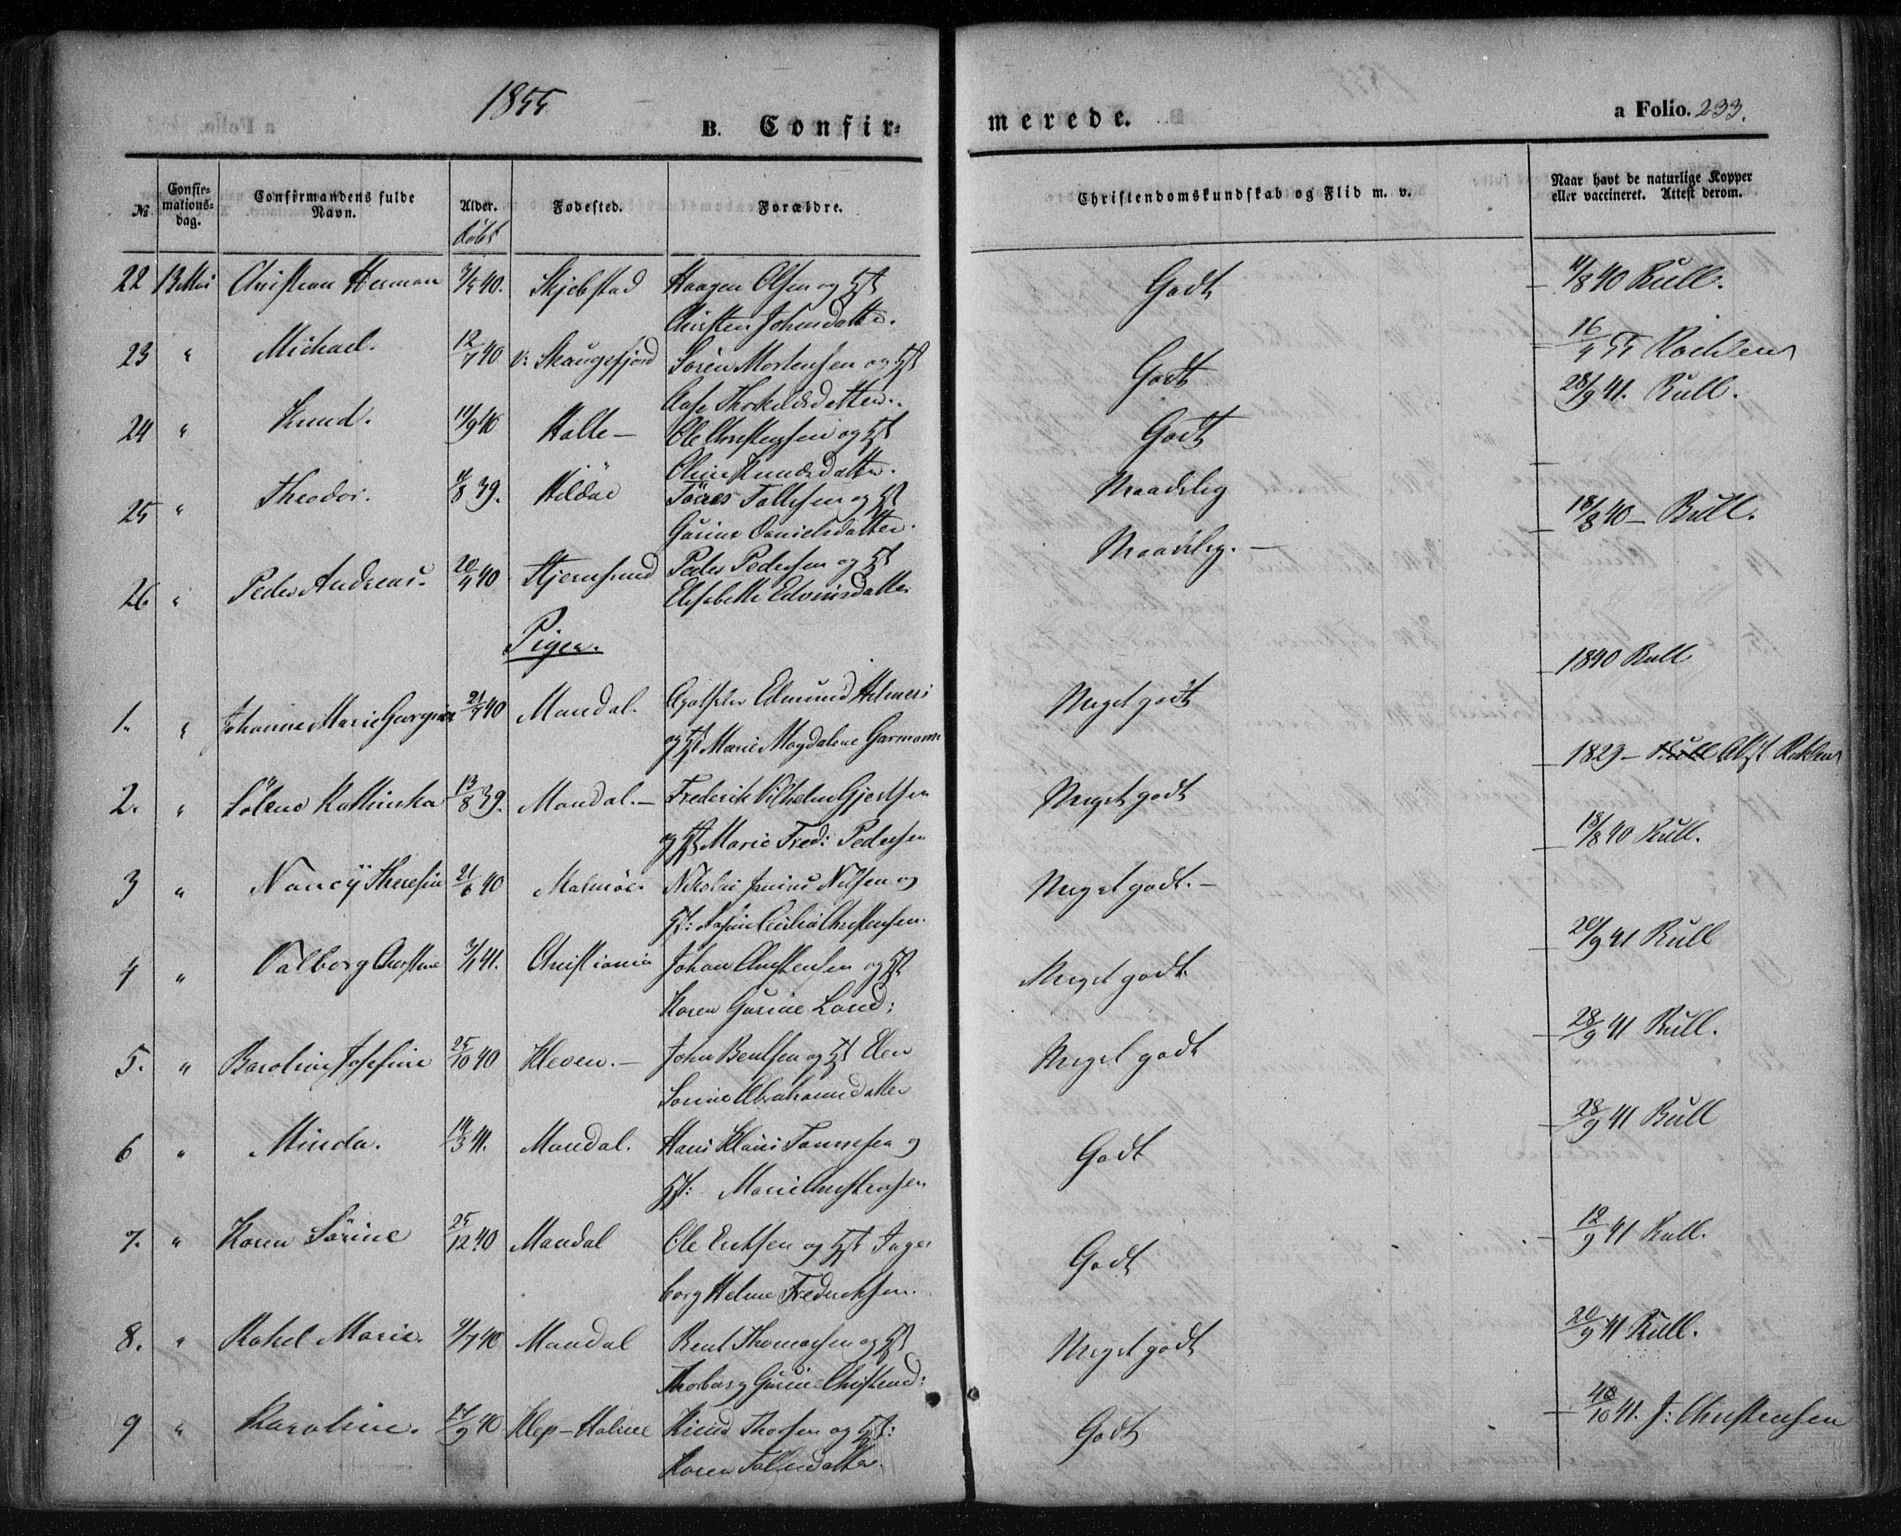 1855
B. Confir- merede. a Folio. 233.
No Confir-mations-dag. Confirmandens fulde Navn. Alder. Fødested. Forældre. Christendomskundskab og Flid m. v. Naar havt de naturlige Kopper eller vaccineret. Attest derom.
døbt
22 13 Mai Christian Herman 3/5 40. Skjebstad Haagen Olsen og Hst Godt 11/8 40 Bull.
Christen Johnsdatter.
23 " Michael. 12/7 40 v: Skaugsfjord Søren Mortensen og Hst Godt 16/4 55
Aase Thorkildsdatter.
24 " Knud. 14/9 40 Halle — Ole Christensen og Hst Godt 28/9 41. Bull.
Oline Knudsdatter.
25 " Theodor. 11/8 39. Tönnes Tallefsen og Hst Maadelig 18/8 40 — Bull.
Gurine Danielsdatter.
26 " Peder Andreas. 20/4 40 Stjernsund Peder Pedersen og Hst Maadelig. —
Elisabeth Edvinsdatter
Piger.
1. " Johanne Marie Georgine 21/4 40 Mandal. Edmund Helmers Meget godt 1840 Bull
og Hst Marie Magdalene Garmann
2. " Kathinka 13/8 39. Mandal. — Frederik Vilhelm Gjertsen Meget godt 1829 —
og Hst Marie Fred: Pedersen
3 " Nancÿ Theresia 21/6 40 Malmöe. Nikolai Junius Nilsen og Meget godt. — 18/8 40 Bull.
Hst: Cecilia Christensen.
4 " Valborg Christine 3/1 41. Christiania Johan Christensen og Hst Meget godt 20/9 41 Bull
Karen Gurine Lund:
5. " Karoline Josefine 25/10 40 Kleven. — John Bentsen og Hst Elen Meget godt 28/9 41 Bull.
Sorine Abrahamsdatter
6 " Minda. 14/3 41. Mandal. Hans Klaus Tønnesen og Godt 28/9 41 Bull
Hst: Marie Christensen
7. " Karen Sörine 25/12 40 Mandal Ole Eriksen og Hst Inge- Godt 12/9 41 Bull.
borg Helene Frederiksen.
8. " Rakel Marie. 9/7 40 Mandal Bent Thomassen og Hst Meget godt 20/9 41 Bull.
Thorborg Gurine Christensd:
9 " Karoline. 27/9 40 Klep-Holme Knud Thorsen og Hst: Godt 10/10 41. J: Christensen
Karen Tollusdatter.